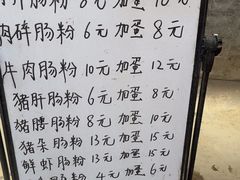 肠粉 8元 加蛋 10元
肉碎肠粉 6元 加蛋 8元
牛肉肠粉 10元 加蛋 12元
猪肝肠粉 6元 加蛋 8元
猪腰肠粉 8元 加蛋 10元
猪杂肠粉 13元 加蛋 15元
鲜虾肠粉 13元 加蛋 15元
肠粉 4元 加蛋 6元